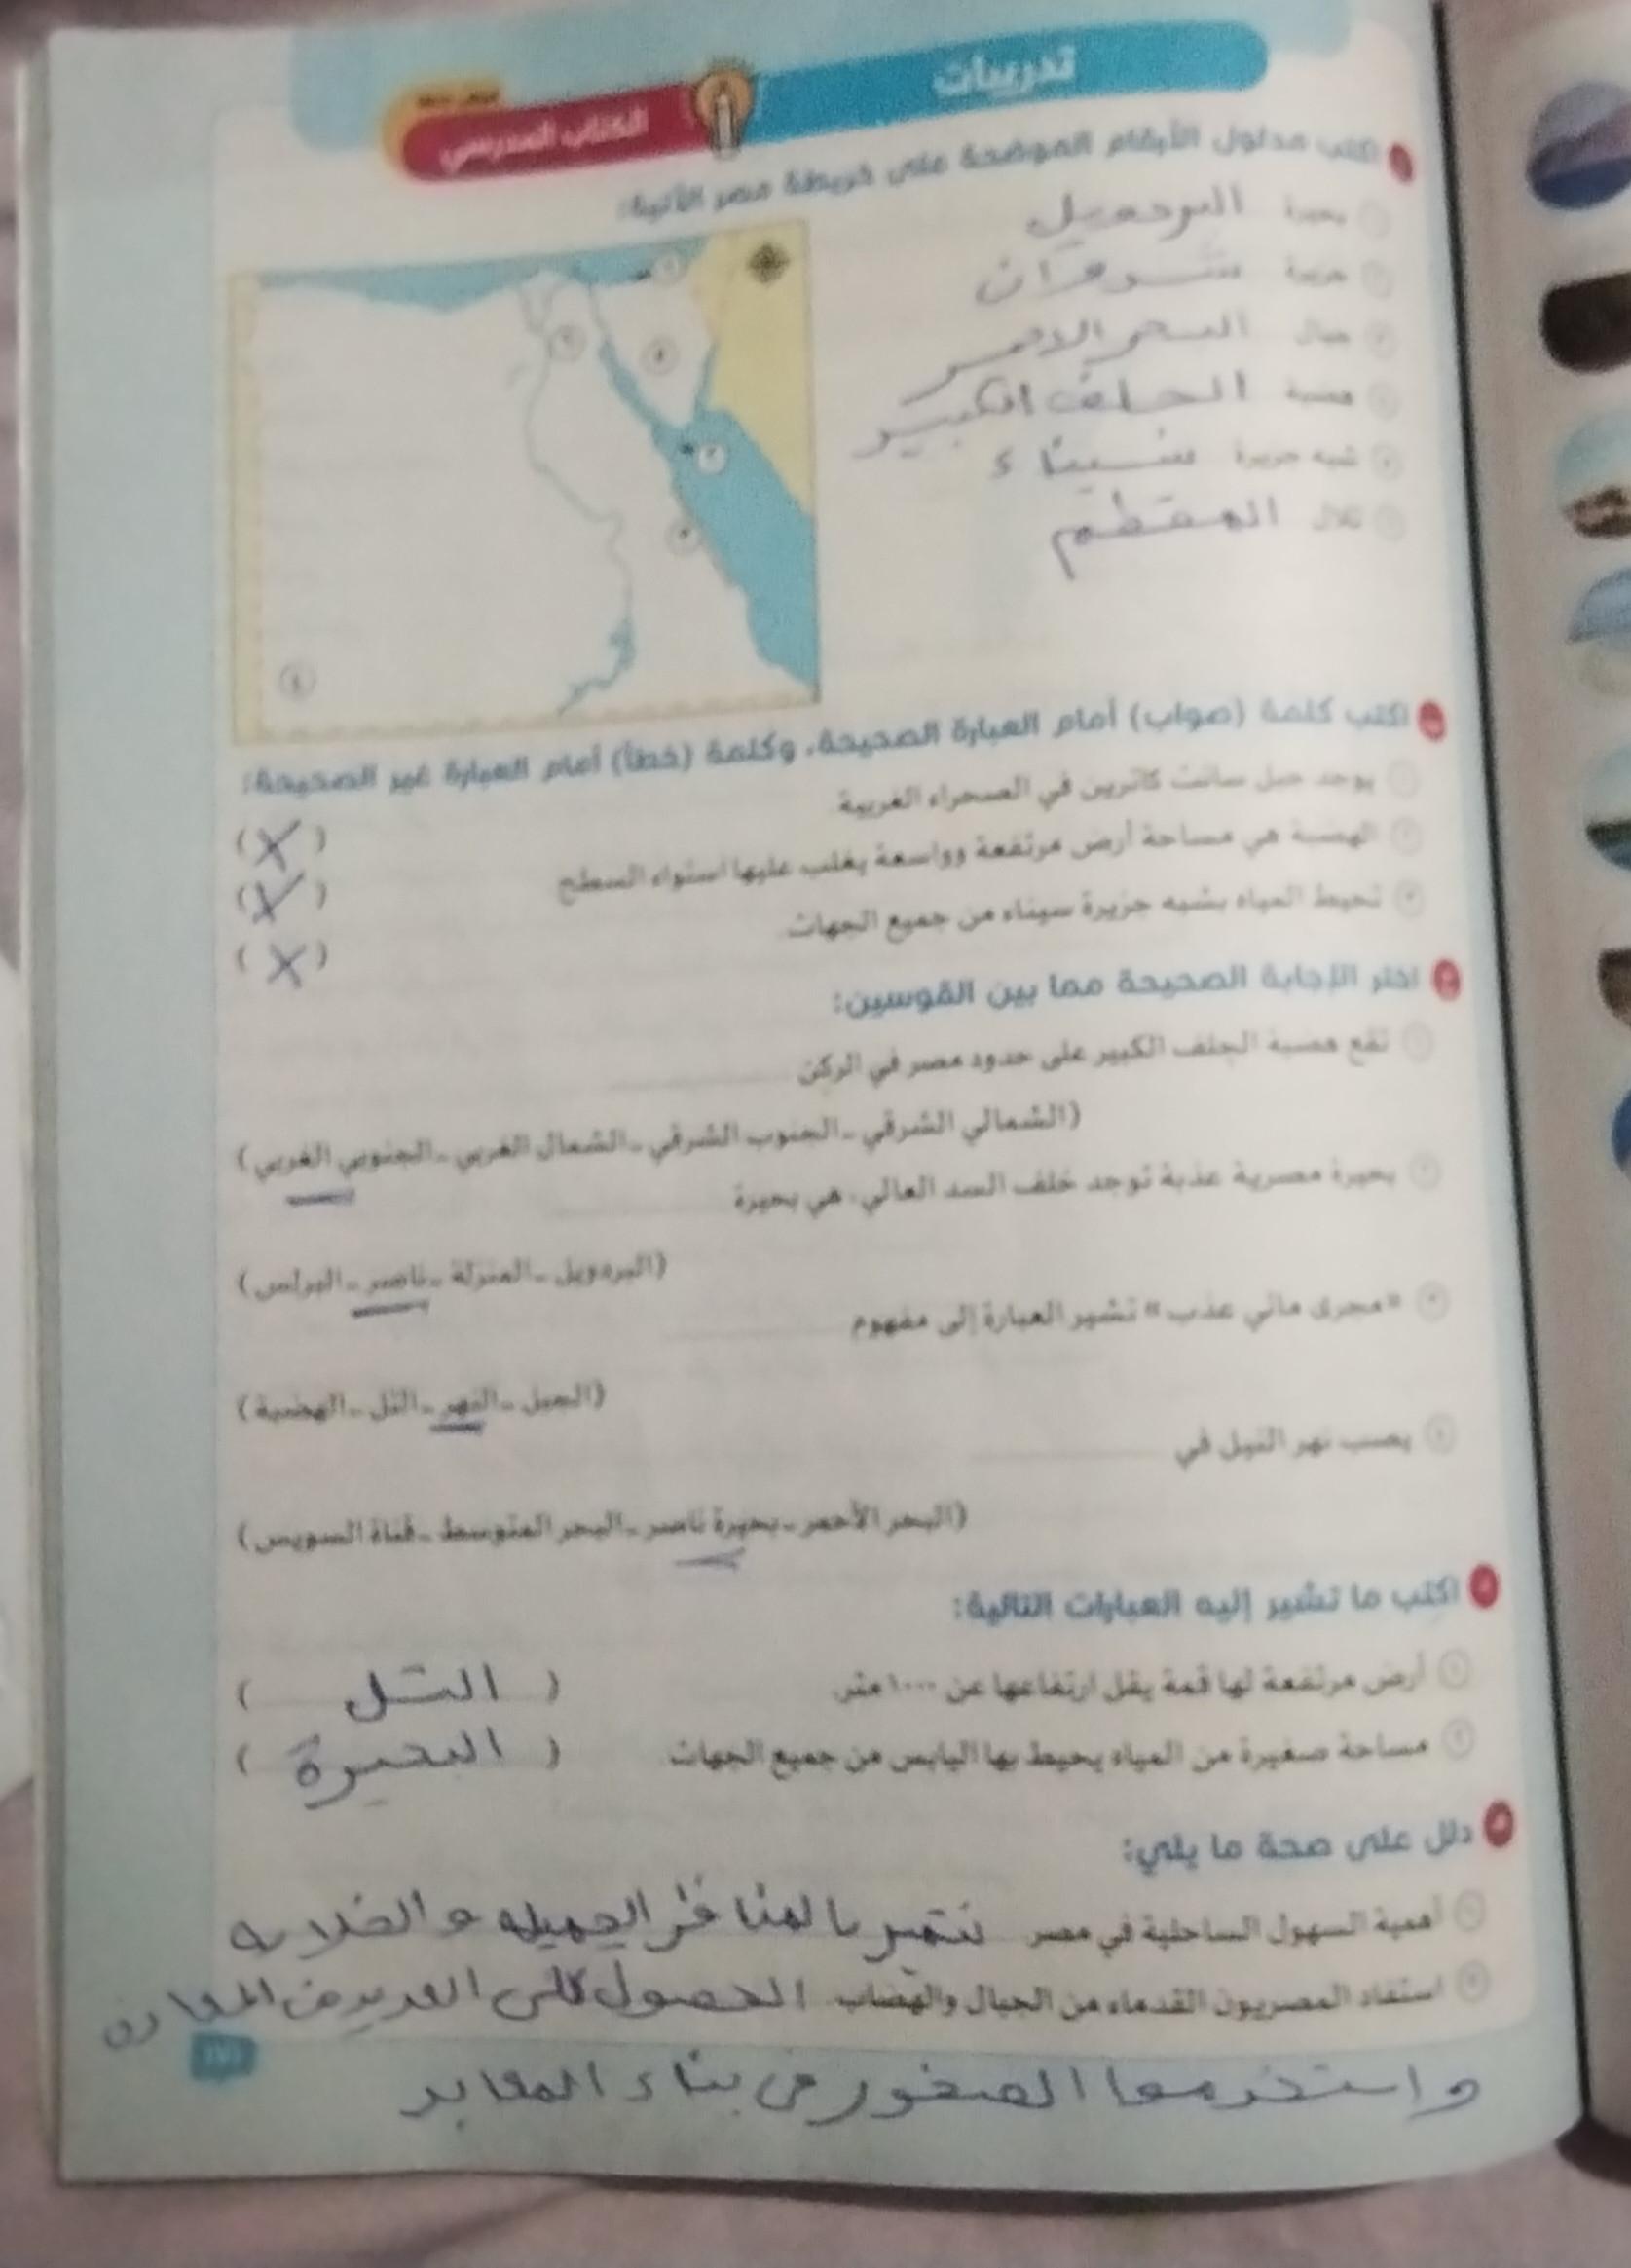 تدريبات
الكتاب المدرسي
اكتب مدلول الأرقام الموضحة على خريطة مصر الآتية:
١ بحيرة البردويل
٢ جزيرة شدوان
٣ جبال البحر الاحمر
٤ هضبة الجلف الكبير
٥ شبه جزيرة سيناء
٦ تلال المقطم
اكتب كلمة (صواب) أمام العبارة الصحيحة، وكلمة (خطأ) أمام العبارة غير الصحيحة:
١ يوجد جبل سانت كاترين في الصحراء الغربية. (X)
٢ الهضبة هي مساحة أرض مرتفعة وواسعة يغلب عليها استواء السطح. ( )
٣ تحيط المياه بشبه جزيرة سيناء من جميع الجهات. (X)
٣ اختر الإجابة الصحيحة مما بين القوسين:
١ تقع هضبة الجلف الكبير على حدود مصر في الركن
(الشمالي الشرقي - الجنوب الشرقي - الشمال الغربي - الجنوبي الغربي)
٢ بحيرة مصرية عذبة توجد خلف السد العالي، هي بحيرة
(البردويل - المنزلة - ناصر - البرلس)
٣ "مجرى مائي عذب" تشير العبارة إلى مفهوم
(الجبل - النهر - التل - الهضبة)
٤ يصب نهر النيل في
(البحر الأحمر - بحيرة ناصر - البحر المتوسط - قناة السويس)
٤ اكتب ما تشير إليه العبارات التالية:
١ أرض مرتفعة لها قمة يقل ارتفاعها عن ١٠٠٠ متر. ( التل )
٢ مساحة صغيرة من المياه يحيط بها اليابس من جميع الجهات. ( البحيرة )
٥ دلل على صحة ما يلي:
١ أهمية السهول الساحلية في مصر. تتميز بالمناظر الجميله و الخلابه
٢ استفاد المصريون القدماء من الجبال والهضاب. الحصول على العديد من المعادن
واستخدموا الصخور في بناء المعابد